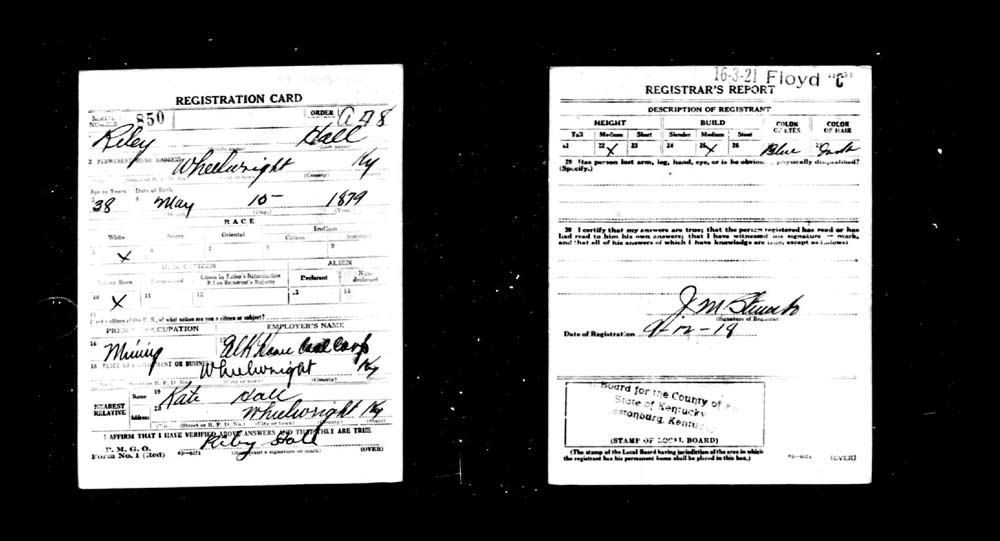 REGISTRATION CARD
SERIAL NUMBER 850 ORDER A 478
Riley Hall
2 PERMANENT HOME ADDRESS
Wheelwright Ky
Age in Years Date of Birth
38 May 10 - 1879
RACE
White Negro Oriental Indian
Citizen
5 X 6 7 8 9
U. S. CITIZEN ALIEN
Native Born Naturalized Citizen by Father's Naturalization Before Registrant's Majority Declarant Non-declarant
10 X 11 12 13 14
If not a citizen of the U. S., of what nation are you a citizen or subject?
PRESENT OCCUPATION EMPLOYER'S NAME
16 Mining 17 Elk Horn Coal Corp
18 PLACE OF EMPLOYMENT OR BUSINESS
Wheelwright Ky
(Street or R. F. D. No.) (City or town) (County)
NEAREST RELATIVE
Name 19 Kate Hall
Address 20 Wheelwright Ky
(Street or R. F. D. No.) (City or town) (County) (State)
I AFFIRM THAT I HAVE VERIFIED ABOVE ANSWERS AND THAT THEY ARE TRUE
P. M. G. O.
Form No. 1 (Red) Riley Hall
(Registrant's signature or mark) (OVER)
16-3-21 Floyd "C"
REGISTRAR'S REPORT
DESCRIPTION OF REGISTRANT
HEIGHT BUILD COLOR OF EYES COLOR OF HAIR
Tall Medium Short Slender Medium Stout
21 22 X 23 24 25 X 26 Blue
29 Has person lost arm, leg, hand, eye, or is he obviously physically disqualified?
(Specify.)
30 I certify that my answers are true; that the person registered has read or has
had read to him his own answers; that I have witnessed his signature or mark,
and that all of his answers of which I have knowledge are true, except as follows:
J M
(Signature of Registrar)
Date of Registration 9-12-18
Board for the County of
State of Kentucky
(STAMP OF LOCAL BOARD)
(The stamp of the Local Board having jurisdiction of the area in which
the registrant has his permanent home shall be placed in this box.)
(OVER)